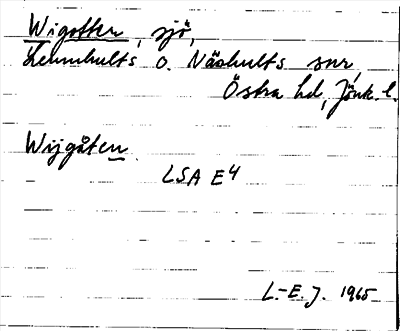 Wigotten, sjö,
Lemnhults o. Näshults snr,
Östra hd, Jönk. l.
Wijgåten
LSA E4
L.-E. J. 1965